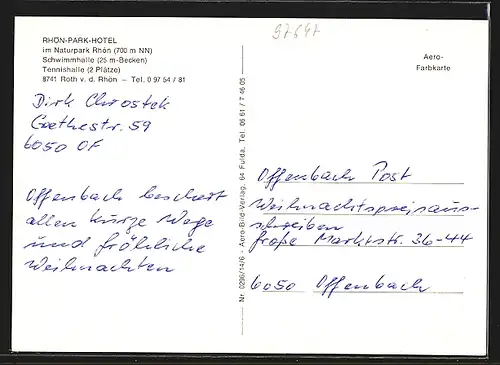 97647
RHÖN-PARK-HOTEL
im Naturpark Rhön (700 m NN)
Schwimmhalle (25 m-Becken)
Tennishalle (2 Plätze)
8741 Roth v. d. Rhön – Tel. 0 97 54 / 81
Dirk Chrostek
Goethestr. 59
6050 OF
Offenbach beschert
allen kurze Wege
und fröhliche
Weihnachten
Nr. 0296/14/6 - Aero-Bild-Verlag, 64 Fulda, Tel. 06 61 / 7 46 05
Aero-
Farbkarte
Offenbach Post
Weihnachtspreisaus-
schreiben
große Marktstr. 36-44
6050 Offenbach